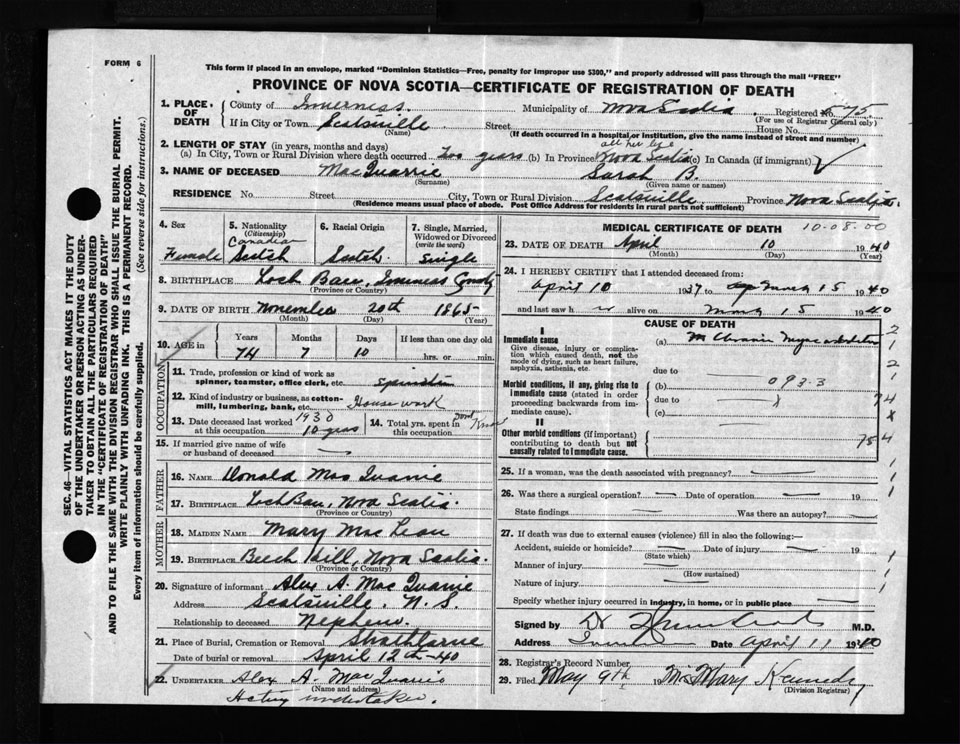 FORM 6
This form if placed in an envelope, marked "Dominion Statistics—Free, penalty for improper use $300," and properly addressed will pass through the mail "FREE"
PROVINCE OF NOVA SCOTIA—CERTIFICATE OF REGISTRATION OF DEATH
1. PLACE OF DEATH County of Inverness Municipality of Nova Scotia Registered No. 75
(For use of Registrar General only)
If in City or Town Scotsville Street House No.
(Name) (If death occurred in a hospital or institution, give the name instead of street and number)
2. LENGTH OF STAY (in years, months and days) all her life
(a) In City, Town or Rural Division where death occurred years (b) In Province Nova Scotia (c) In Canada (if immigrant)
3. NAME OF DECEASED MacQuarrie Sarah B.
(Surname) (Given name or names)
RESIDENCE No. Street City, Town or Rural Division Scotsville Province Nova Scotia
(Residence means usual place of abode. Post Office Address for residents in rural parts not sufficient)
4. Sex Female
5. Nationality (Citizenship) Canadian Scotch
6. Racial Origin Scotch
7. Single, Married, Widowed or Divorced (write the word) Single
8. BIRTHPLACE Loch Ban, Inverness County
(Province or Country)
9. DATE OF BIRTH November 20th 1865
(Month) (Day) (Year)
10. AGE in Years 74 Months 7 Days 10 If less than one day old hrs. or min.
OCCUPATION
11. Trade, profession or kind of work as spinner, teamster, office clerk, etc. Spinster
12. Kind of industry or business, as cotton-mill, lumbering, bank, etc. House work
13. Date deceased last worked at this occupation 1930 10 years
14. Total yrs. spent in this occupation Dont Know
15. If married give name of wife or husband of deceased —
FATHER
16. NAME Donald MacQuarrie
17. BIRTHPLACE Loch Ban, Nova Scotia
(Province or Country)
MOTHER
18. MAIDEN NAME Mary MacLean
19. BIRTHPLACE Beech Hill, Nova Scotia.
(Province or Country)
20. Signature of informant Alex A. MacQuarrie
Address Scotsville. N. S.
Relationship to deceased Nephew
21. Place of Burial, Cremation or Removal Strathlorne
Date of burial or removal April 12th-40
22. UNDERTAKER Alex A. MacQuarrie
(Name and address)
Acting undertaker.
MEDICAL CERTIFICATE OF DEATH
10-08-00
23. DATE OF DEATH April 10 1940
(Month) (Day) (Year)
24. I HEREBY CERTIFY that I attended deceased from:
April 10 1937 to March 15 1940
and last saw h er alive on March 15 1940
CAUSE OF DEATH
I
Immediate cause
Give disease, injury or complication which caused death, not the mode of dying, such as heart failure, asphyxia, asthenia, etc.
(a) Chronic Myocarditis
due to
Morbid conditions, if any, giving rise to immediate cause (stated in order proceeding backwards from immediate cause).
(b) 093-3
due to
(c)
II
Other morbid conditions (if important) contributing to death but not causally related to immediate cause.
25. If a woman, was the death associated with pregnancy? —
26. Was there a surgical operation? — Date of operation — 19
State findings — Was there an autopsy? —
27. If death was due to external causes (violence) fill in also the following:—
Accident, suicide or homicide? — Date of injury — 19
(State which)
Manner of injury —
(How sustained)
Nature of injury —
Specify whether injury occurred in industry, in home, or in public place —
Signed by Dr M.D.
Address Date April 11 1940
28. Registrar's Record Number
29. Filed May 9th 19 Mary Kennedy
(Division Registrar)
SEC. 46—VITAL STATISTICS ACT MAKES IT THE DUTY
OF THE UNDERTAKER OR PERSON ACTING AS UNDERTAKER TO OBTAIN ALL THE PARTICULARS REQUIRED
IN THE "CERTIFICATE OF REGISTRATION OF DEATH"
AND TO FILE THE SAME WITH THE DIVISION REGISTRAR WHO SHALL ISSUE THE BURIAL PERMIT.
WRITE PLAINLY WITH UNFADING INK. THIS IS A PERMANENT RECORD.
Every item of information should be carefully supplied. (See reverse side for instructions.)